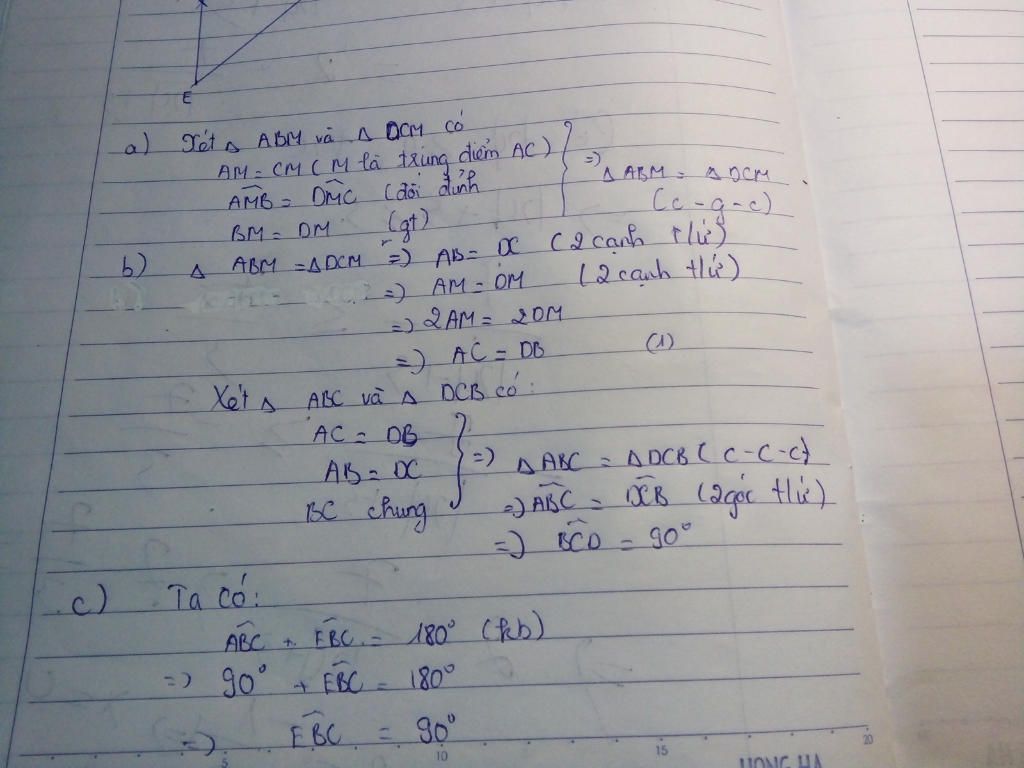 E
a) Xét Δ ABM và Δ DCM có
AM = CM ( M là trung điểm AC)
AMB = DMC (đối đỉnh
BM = DM (gt)
=> Δ ABM = Δ DCM
(c-g-c)
b) Δ ABM = Δ DCM => AB = DC (2 cạnh t/ứ)
=> AM = DM (2 cạnh t/ứ)
=> 2AM = 2DM
=> AC = DB (1)
Xét Δ ABC và Δ DCB có:
AC = DB
AB = DC
BC chung
=> Δ ABC = Δ DCB ( c-c-c)
=> ABC = DCB (2 góc t/ứ)
=> BCD = 90°
c) Ta có:
ABC + EBC = 180° (kb)
=> 90° + EBC = 180°
=> EBC = 90°
5 10 15 20
HONG HA